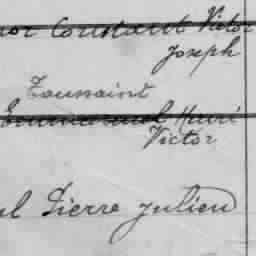 nor Constant Victor
Joseph
Toussaint
Emmanuel Henri
Victor
el Pierre Julien